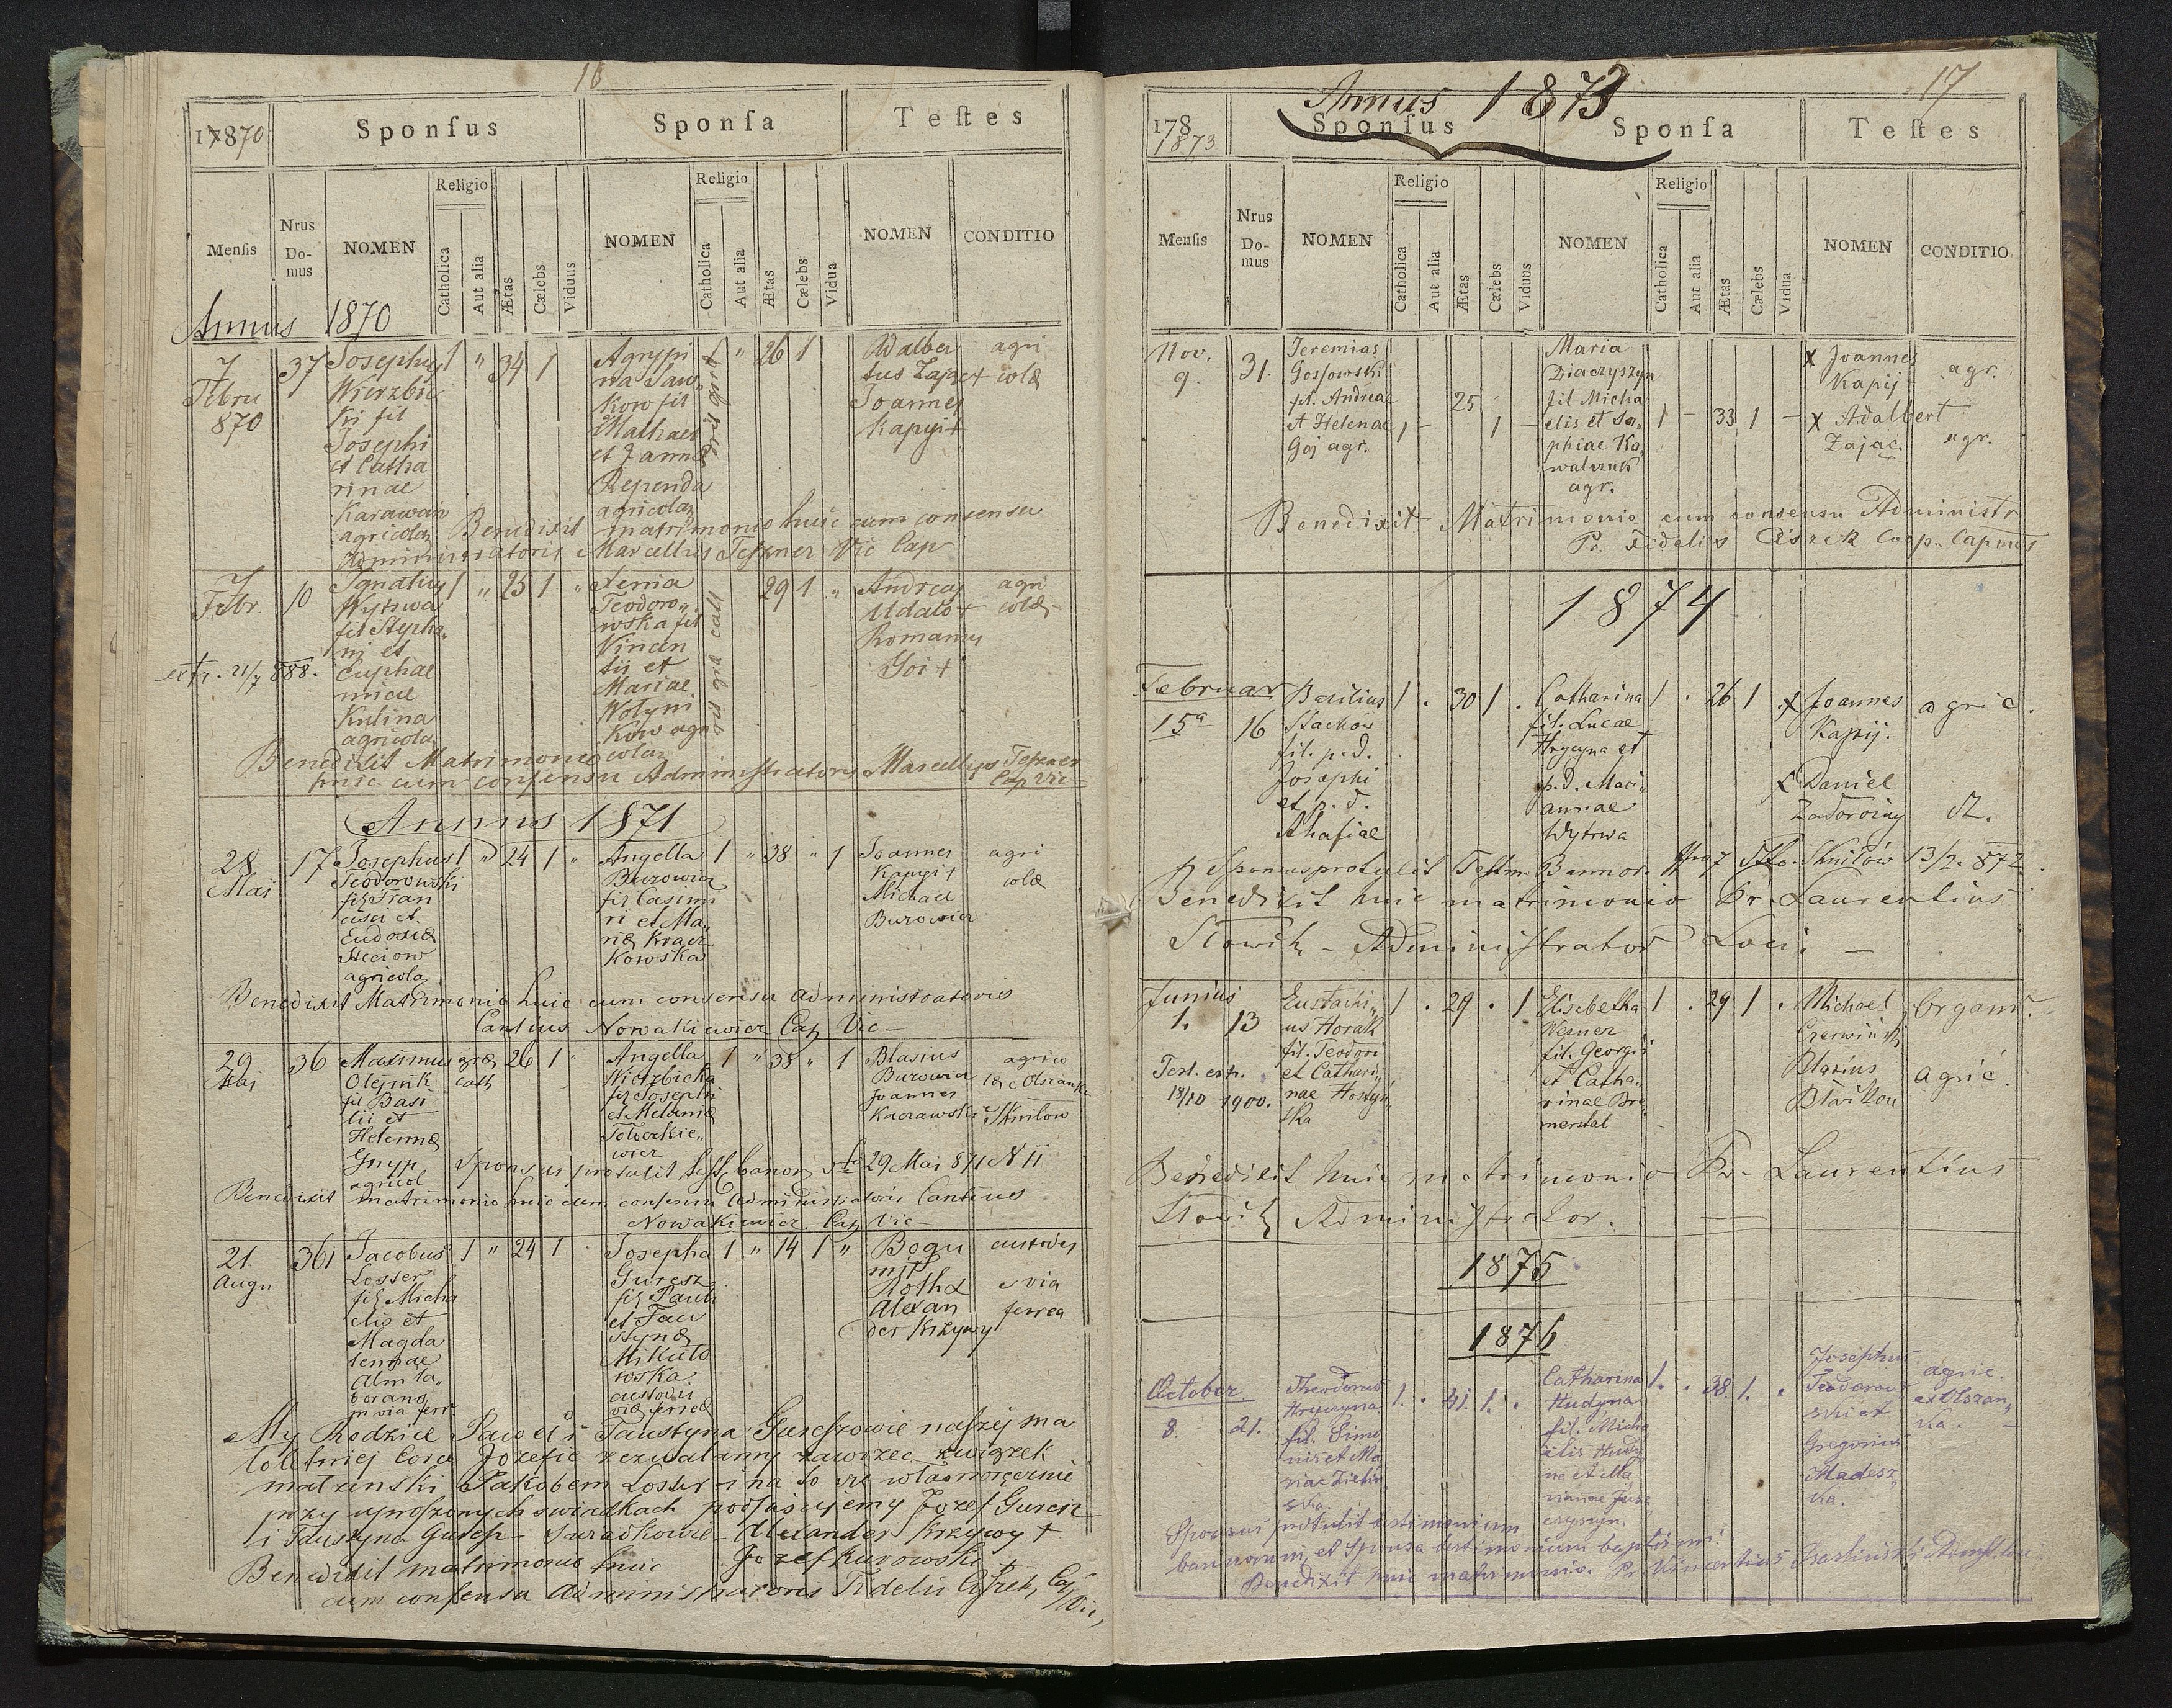 16
17870
Sponsus
Sponsa
Testes
Mensis
Nrus Domus
NOMEN
Religio
Catholica
Aut alia
Ætas
Cælebs
Viduus
NOMEN
Religio
Catholica
Aut alia
Ætas
Cælebs
Vidua
NOMEN
CONDITIO
Annus 1870
7
Febru
870
37
Josephus
Wierzbic
ki fil
Josephi
et Catha
rinae
Karawan
agricola
1 " 34 1
Agrypi
na Saw
kow fil
Mathaei
et Janna
Rependa
agricola
1 " 26 1
Adalber
tus Zając+
Joannes
Kapyi+
agri
colæ
Benedixit matrimonio huic cum consensu
Administratoris Marcellus Tepzner Vic Cap
7
Febr.
10
extr. 21/7 888.
Ignatius
Wytrwa
fil Stepha
ni et
Euphae
miae
Kulina
agricola
1 " 25 1 "
Xenia
Teodoro
wska fil
Vincen
tii et
Mariae
Wolyni
kow agri
colar
rit græ cath
29 1 "
Andreas
Udalo+
Romanus
Goi+
agri
colæ
Benedixit Matrimonio
huic cum consensu Administratoris Marcellus Tepzner
Cap Vic
Annus 1871
28
Maj
17
Josephus
Teodorowski
fil Fran
cisci et
Eudoxiæ
Steciow
agricola
1 " 24 1 "
Angella
Burowicz
fil Casimi
ri et Ma
riæ Kracz
kowska
1 " 38 " 1
Joannes
Kapyi+
Michael
Burowicz
agri
colæ
Benedixit Matrimonio huic cum consensu administratoris
Cantius Nowakiewicz Cap Vic
29
Maj
36
Maximus
Olejnik
fil Basi
lii et
Helennæ
Gnyp
agricol
græ
cath
26 1 "
Angella
Wierzbicka
fil Josephi
et Melaniæ
Toloczkie
wicz
1 " 38 " 1
Blasius
Burowicz
Joannes
Kaczawski
agrico
læ e Olszank
Sknilow
Sponsus protulit test banor dto 29 Mai 871 N 11
Benedixit matrimonio huic cum consensu administratoris Cantius
Nowakiewicz Cap Vic
21.
Augu
361
Jacobus
Loster
fil Micha
elis et
Magda
lennae
Alm la
borans
in via ferr
1 " 24 1
Josepha
Guresz
fil Pauli
et Fau
stynæ
Mikulo
wska
custodis
viæ ferreæ
1 " 14 1 "
Bogu
mił
Rotha
Alexan
der Krzywy
custodes
via
ferrea
My Rodzice Paweł i Faustyna Gureszowie naszej ma
loletniej Corce Jozefie zezwalamy zawrzec związek
małzenski z Jakobem Loster i na to się własnoręcznie
przy uproszonych swiadkach podpisujemy Jozef Guresz
i Faustyna Guresz Swiadkowie Alexander Krzywy +
Jozef Kurowski +
Benedixit matrimonio huic
cum consensu administratoris Fidelis Cišek Cap Vic
17
Annus 1873
178
1873
Sponsus
Sponsa
Testes
Mensis
Nrus Domus
NOMEN
Religio
Catholica
Aut alia
Ætas
Cælebs
Viduus
NOMEN
Religio
Catholica
Aut alia
Ætas
Cælebs
Vidua
NOMEN
CONDITIO
Nov.
9.
31.
Jeremias
Gossowski
fil. Andreae
et Helenae
Goj agr.
1 - 25 1 -
Maria
Dziaczyszyn
fil Micha
elis et So
phiae Ko
walczuk
agr.
1 - 33 1 -
x Joannes
Kapij
x Adalbert
Zając.
agr.
agr.
Benedixit Matrimonio cum consensu Administr
Pr. Fidelis Cišek Coop. Capnus
1874
Februar
15ª
16
Basilius
Stachow
fil. p.d.
Josephi
et p.d.
Ahafiae
1 . 30 1 .
Catharina
fil. Lucae
Hrycyna et
p.d. Mari
annae
Wytrwa
1 . 26 1
x Joannes
Kapij.
x Daniel
Zadorożny
agric.
dt.
Sponsus protulit Testm. Bannor. Nro 7 dto. Sknilów 13/2. 872.
Benedixit huic matrimonio Pr. Laurentius
Słowik - Administrator Loci -
Junius
1.
13
Test. extr.
13/10 1900.
Eustachi
us Horak
fil. Teodori
et Cathari
nae Hostyń
ska
1 . 29 . 1
Elisabetha
Werner
fil. Georgii
et Catha
rinae Bre
merstal
1 . 29 1 .
Michael
Czerwiński
Blasius
Błaszkow
Organ.
agric.
Benedixit huic matrimonio Pr. Laurentius
Słowik Administrator.
1875
1876
October
8.
21.
Theodorus
Hrycyna
fil. Simo
nis et Ma
riae Zieliń
ska.
1. . 41. 1. .
Catharina
Hudyna
fil. Micha
elis Hudy
na et Ma
riannae Jusz
czyszyn.
1. . 38. 1. .
Josephus
Teodorow
ski et
Gregorius
Madesz
ka.
agric.
ex Olszan
ka.
Sponsus protulit testimonium
bannorum, et Sponsa testimonium baptismi.
Benedixit huic matrimonio. Pr. Vincentius